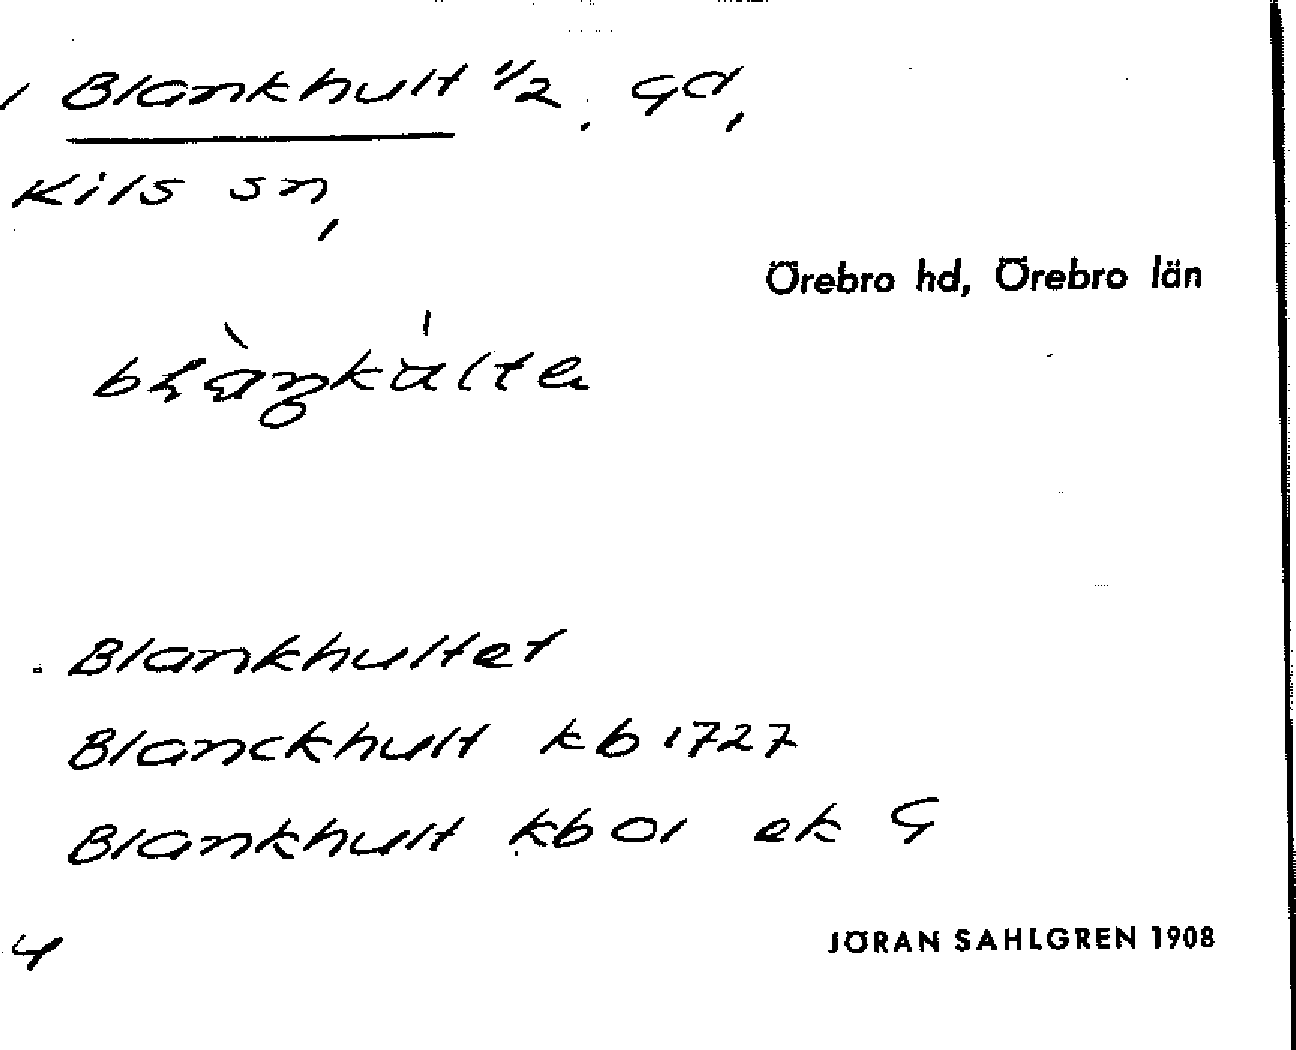 Blankhult 1/2, gd,
Kils sn,
Örebro hd, Örebro län
Blankhultet
Blanckhult kb 1727
Blankhult kb 01 ek G
4
JÖRAN SAHLGREN 1908